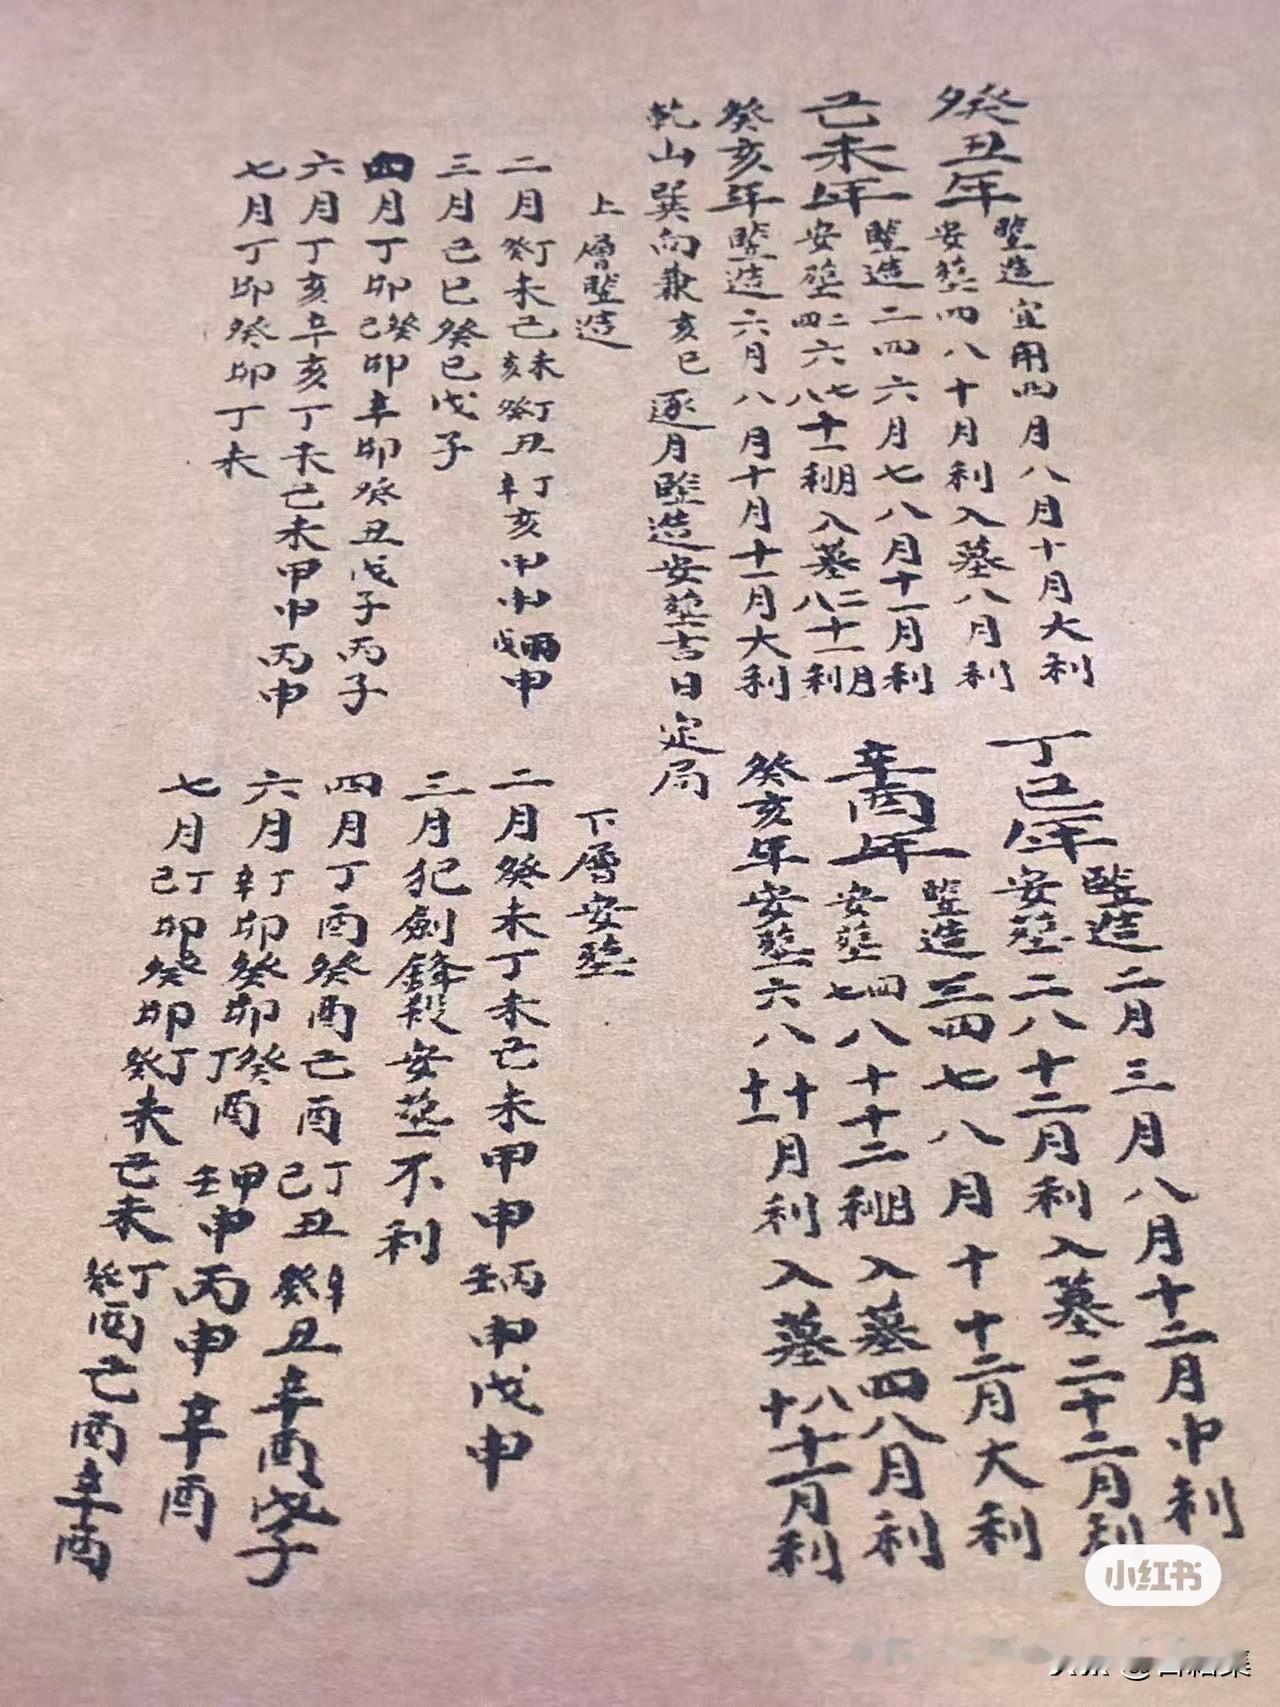 癸丑年
竪造宜用四月八月十月大利
安葬四八十月利入墓八月利
己未年
竪造二四六月七八月十一月利
安葬二四六七八十一月利入墓二八十一月利
癸亥年竪造六月八月十月十一月大利
丁巳年
竪造二月三月八月十二月中利
安葬二八十二月利入墓二十二月利
辛酉年
竪造三四七八月十十二月大利
安葬四七八十十二月利入墓四八月利
癸亥年安葬六八十十一月利入墓八十十一月利
乾山巽向兼亥巳逐月竪造安葬吉日定局
上層竪造
二月丁癸未己未亥丁癸丑丁辛亥甲申丙戊申
三月己巳癸巳戊子
四月丁卯癸己卯辛卯癸丑戊子丙子
六月丁亥辛亥丁未己未甲申丙申
七月丁卯癸卯丁未
下層安葬
二月癸未丁未己未甲申丙壬申戊申
三月犯劍鋒殺安葬不利
四月丁酉癸酉己酉丁己丑辛癸丑辛酉戊子
六月丁辛卯癸卯癸丁酉甲壬申丙申辛酉
七月丁己卯癸卯丁癸未己未丁癸酉己酉辛酉
小红书